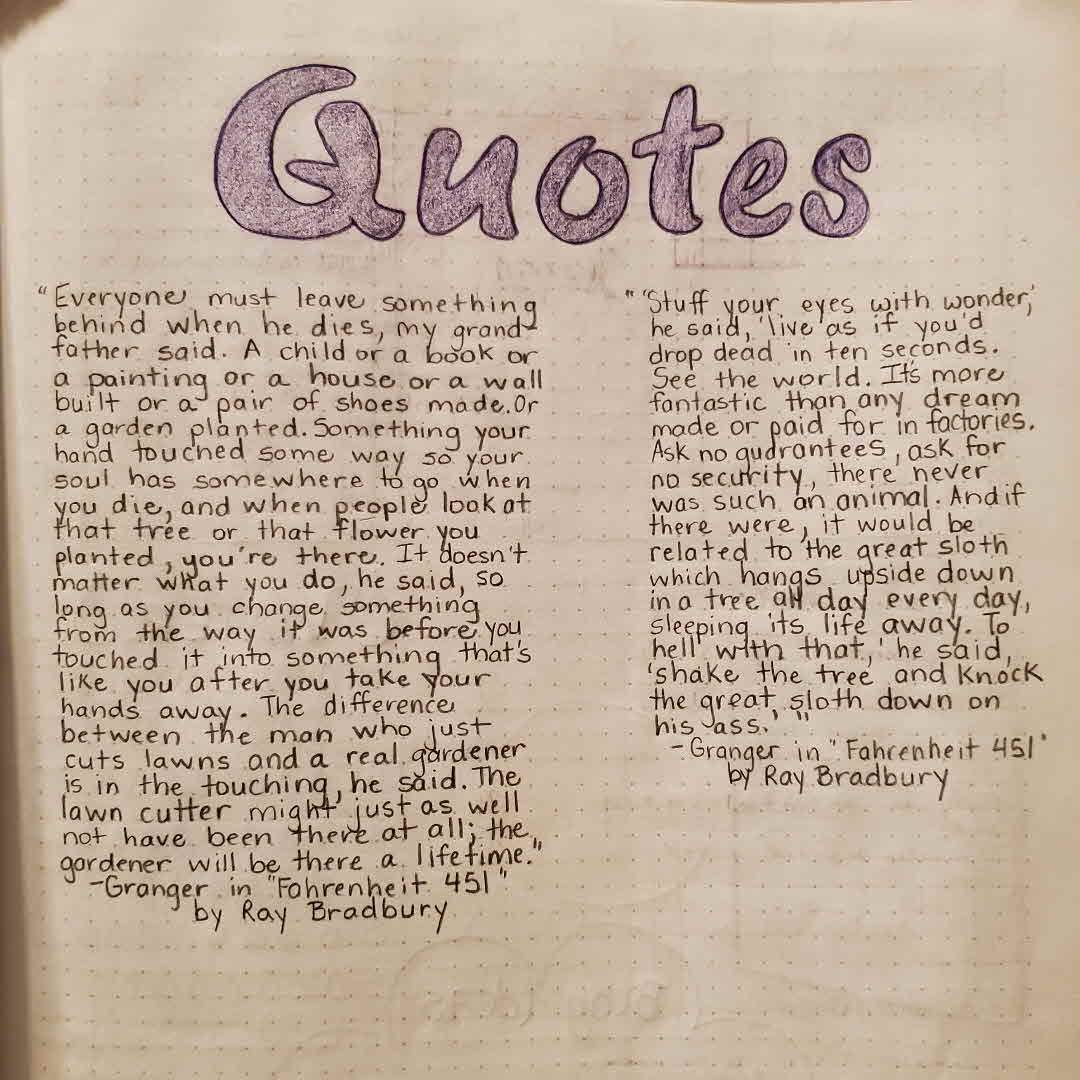 Quotes
"Everyone must leave something
behind when he dies, my grand-
father said. A child or a book or
a painting or a house or a wall
built or a pair of shoes made. Or
a garden planted. Something your
hand touched some way so your
soul has somewhere to go when
you die, and when people look at
that tree or that flower you
planted, you're there. It doesn't
matter what you do, he said, so
long as you change something
from the way it was before you
touched it into something that's
like you after you take your
hands away. The difference
between the man who just
cuts lawns and a real gardener
is in the touching, he said. The
lawn cutter might just as well
not have been there at all; the
gardener will be there a lifetime."
-Granger in "Fahrenheit 451"
by Ray Bradbury
"'Stuff your eyes with wonder,'
he said, 'live as if you'd
drop dead in ten seconds.
See the world. It's more
fantastic than any dream
made or paid for in factories.
Ask no gudrantees, ask for
no security, there never
was such an animal. And if
there were, it would be
related to the great sloth
which hangs upside down
in a tree all day every day,
sleeping its life away. To
hell with that,' he said,
'shake the tree and knock
the great sloth down on
his ass.' "
-Granger in "Fahrenheit 451"
by Ray Bradbury